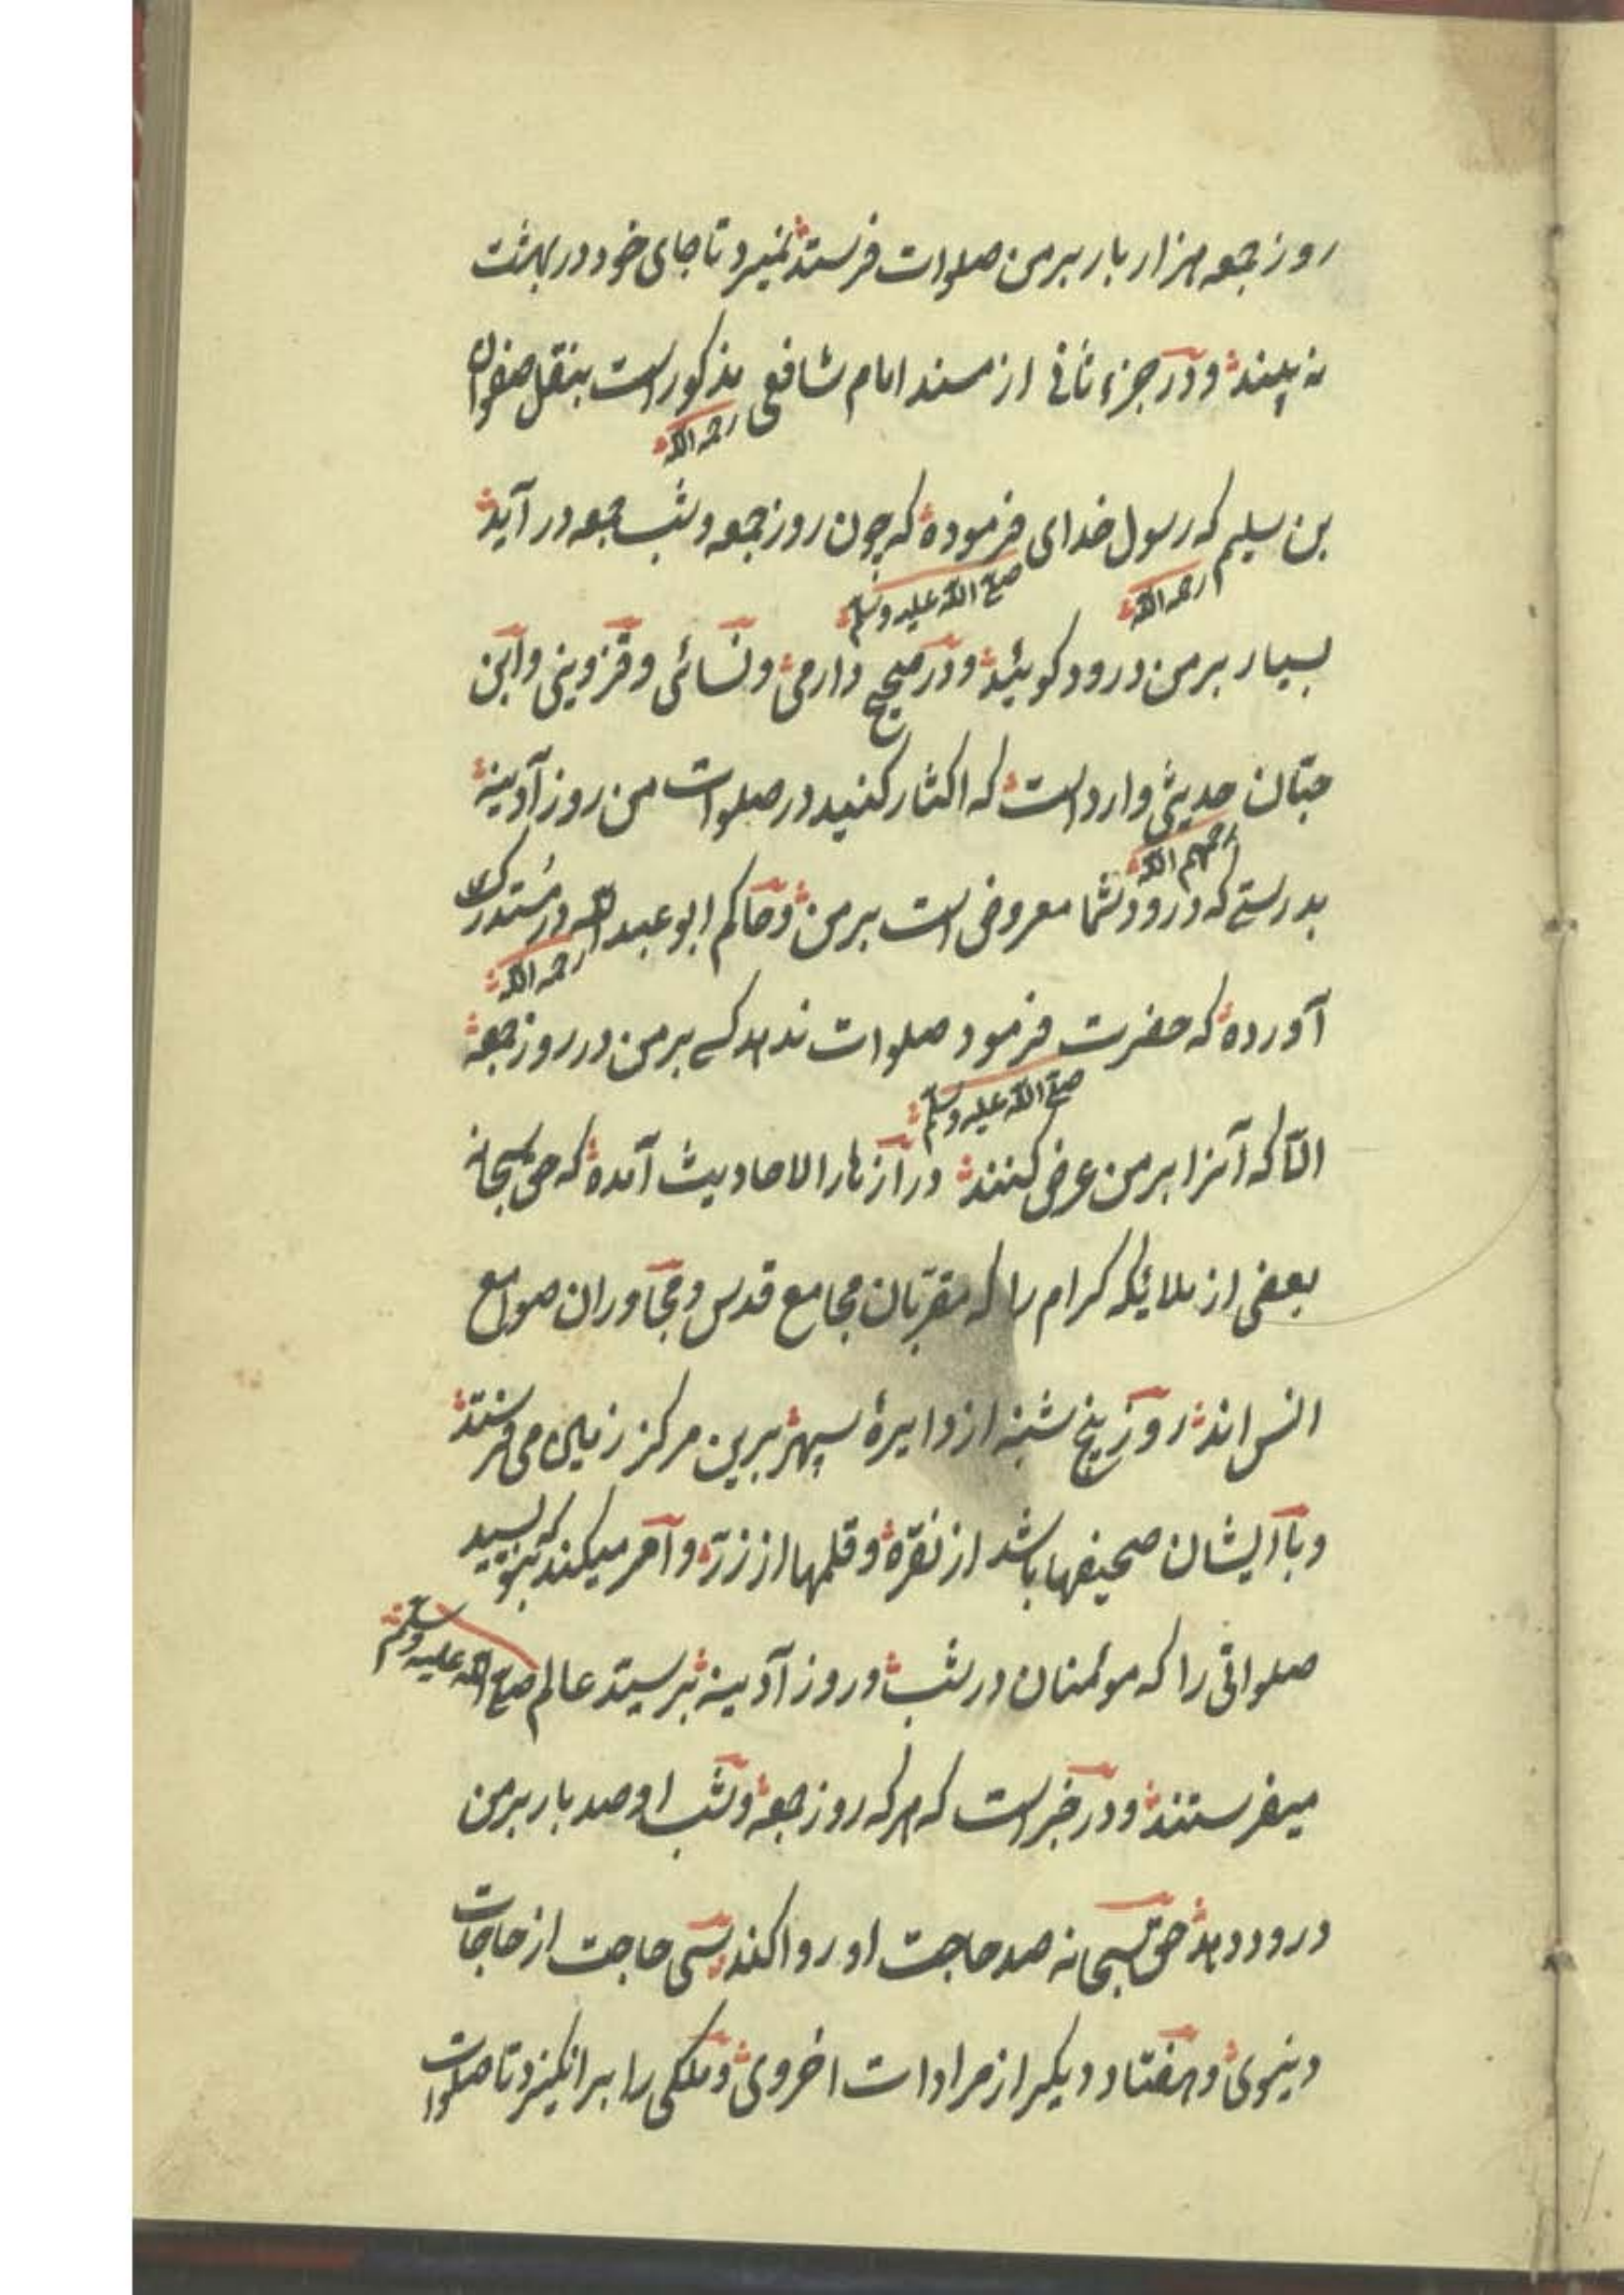 روز جمعه هزار بار بر من صلوات فرستد نمیرد تا جای خود در بهشت
نه بیند و در جزء ثانی از مسند امام شافعی رحمه الله مذکور است بنقل صفوان
بن سلیم رحمه الله که رسول خدای صلی الله علیه وسلم فرموده که چون روز جمعه و شب جمعه در آید
بسیار بر من درود کوئید و در صحیح دارمی و نسائی و قزوینی و ابن
حبّان رحمهم الله حدیثی وارد است که اکثار کنید در صلوات من روز آدینه
بدرستے که درود شما معروض است بر من و حاکم ابو عبد الله رحمه الله در مُستدرک
آورده که حضرت صلی الله علیه وسلم فرمود صلوات ندهد کسے بر من در روز جمعه
الّا که آنرا بر من عرض کنند در ازهار الاحادیث آمده که حق سبحانه
بعضی از ملایکه کرام را که مقربان مجامع قدس و مجاوران صوامع
انس اند روز پنج شنبه از دایرهٔ سپهر برین مرکز زمین می فرستد
و با ایشان صحیفها باشد از نقره و قلمها از زر و امر میکند که بنویسید
صلواتی را که موئمنان در شب و روز آدینه بر سیّد عالم صلی الله علیه وسلم
میفرستند و در خبر است که هر که روز جمعه و شب او صد بار بر من
درود دهد حق سبحانه صد حاجت او روا کند سی حاجت از حاجات
دنیوی و هفتاد دیکر از مرادات اخروی و ملکی را بر انکیزد تا صلوات